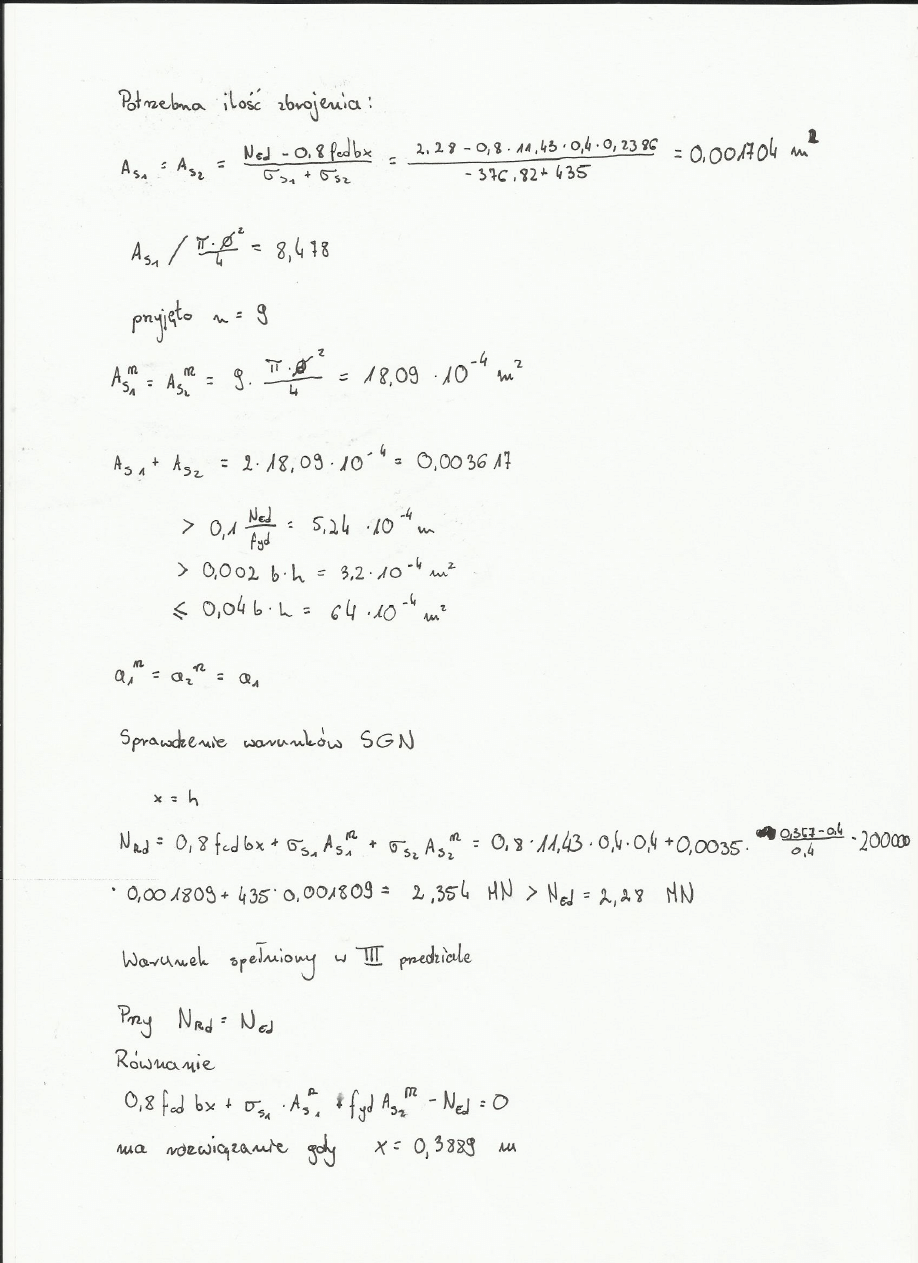 Potrzebna ilość zbrojenia:
A_s1 = A_s2 = (N_Ed - 0,8 fcd b x)/(σ_s1 + σ_s2) = (2,28 - 0,8 · 11,43 · 0,4 · 0,2386)/(-376,82 + 435) = 0,001704 m²
A_s1 / (π·ø²/4) = 8,478
przyjęto n = 9
A_s1^n = A_s2^n = 9 · (π·ø²/4) = 18,09 · 10^-4 m²
A_s1 + A_s2 = 2 · 18,09 · 10^-4 = 0,003617
> 0,1 N_Ed/fyd = 5,24 · 10^-4 m
> 0,002 b·h = 3,2 · 10^-4 m²
≤ 0,04 b·h = 64 · 10^-4 m²
a_1^n = a_2^n = a_1
Sprawdzenie warunków SGN
x = h
N_Rd = 0,8 fcd b x + σ_s1 A_s1^n + σ_s2 A_s2^n = 0,8 · 11,43 · 0,4 · 0,4 + 0,0035 · (0,357 - 0,4)/0,4 · 200000
· 0,001809 + 435 · 0,001809 = 2,354 MN > N_Ed = 2,28 MN
Warunek spełniony w III przedziale
Przy N_Rd = N_Ed
Równanie
0,8 fcd b x + σ_s1 · A_s1^n + fyd A_s2^n - N_Ed = 0
ma rozwiązanie gdy x = 0,3889 m